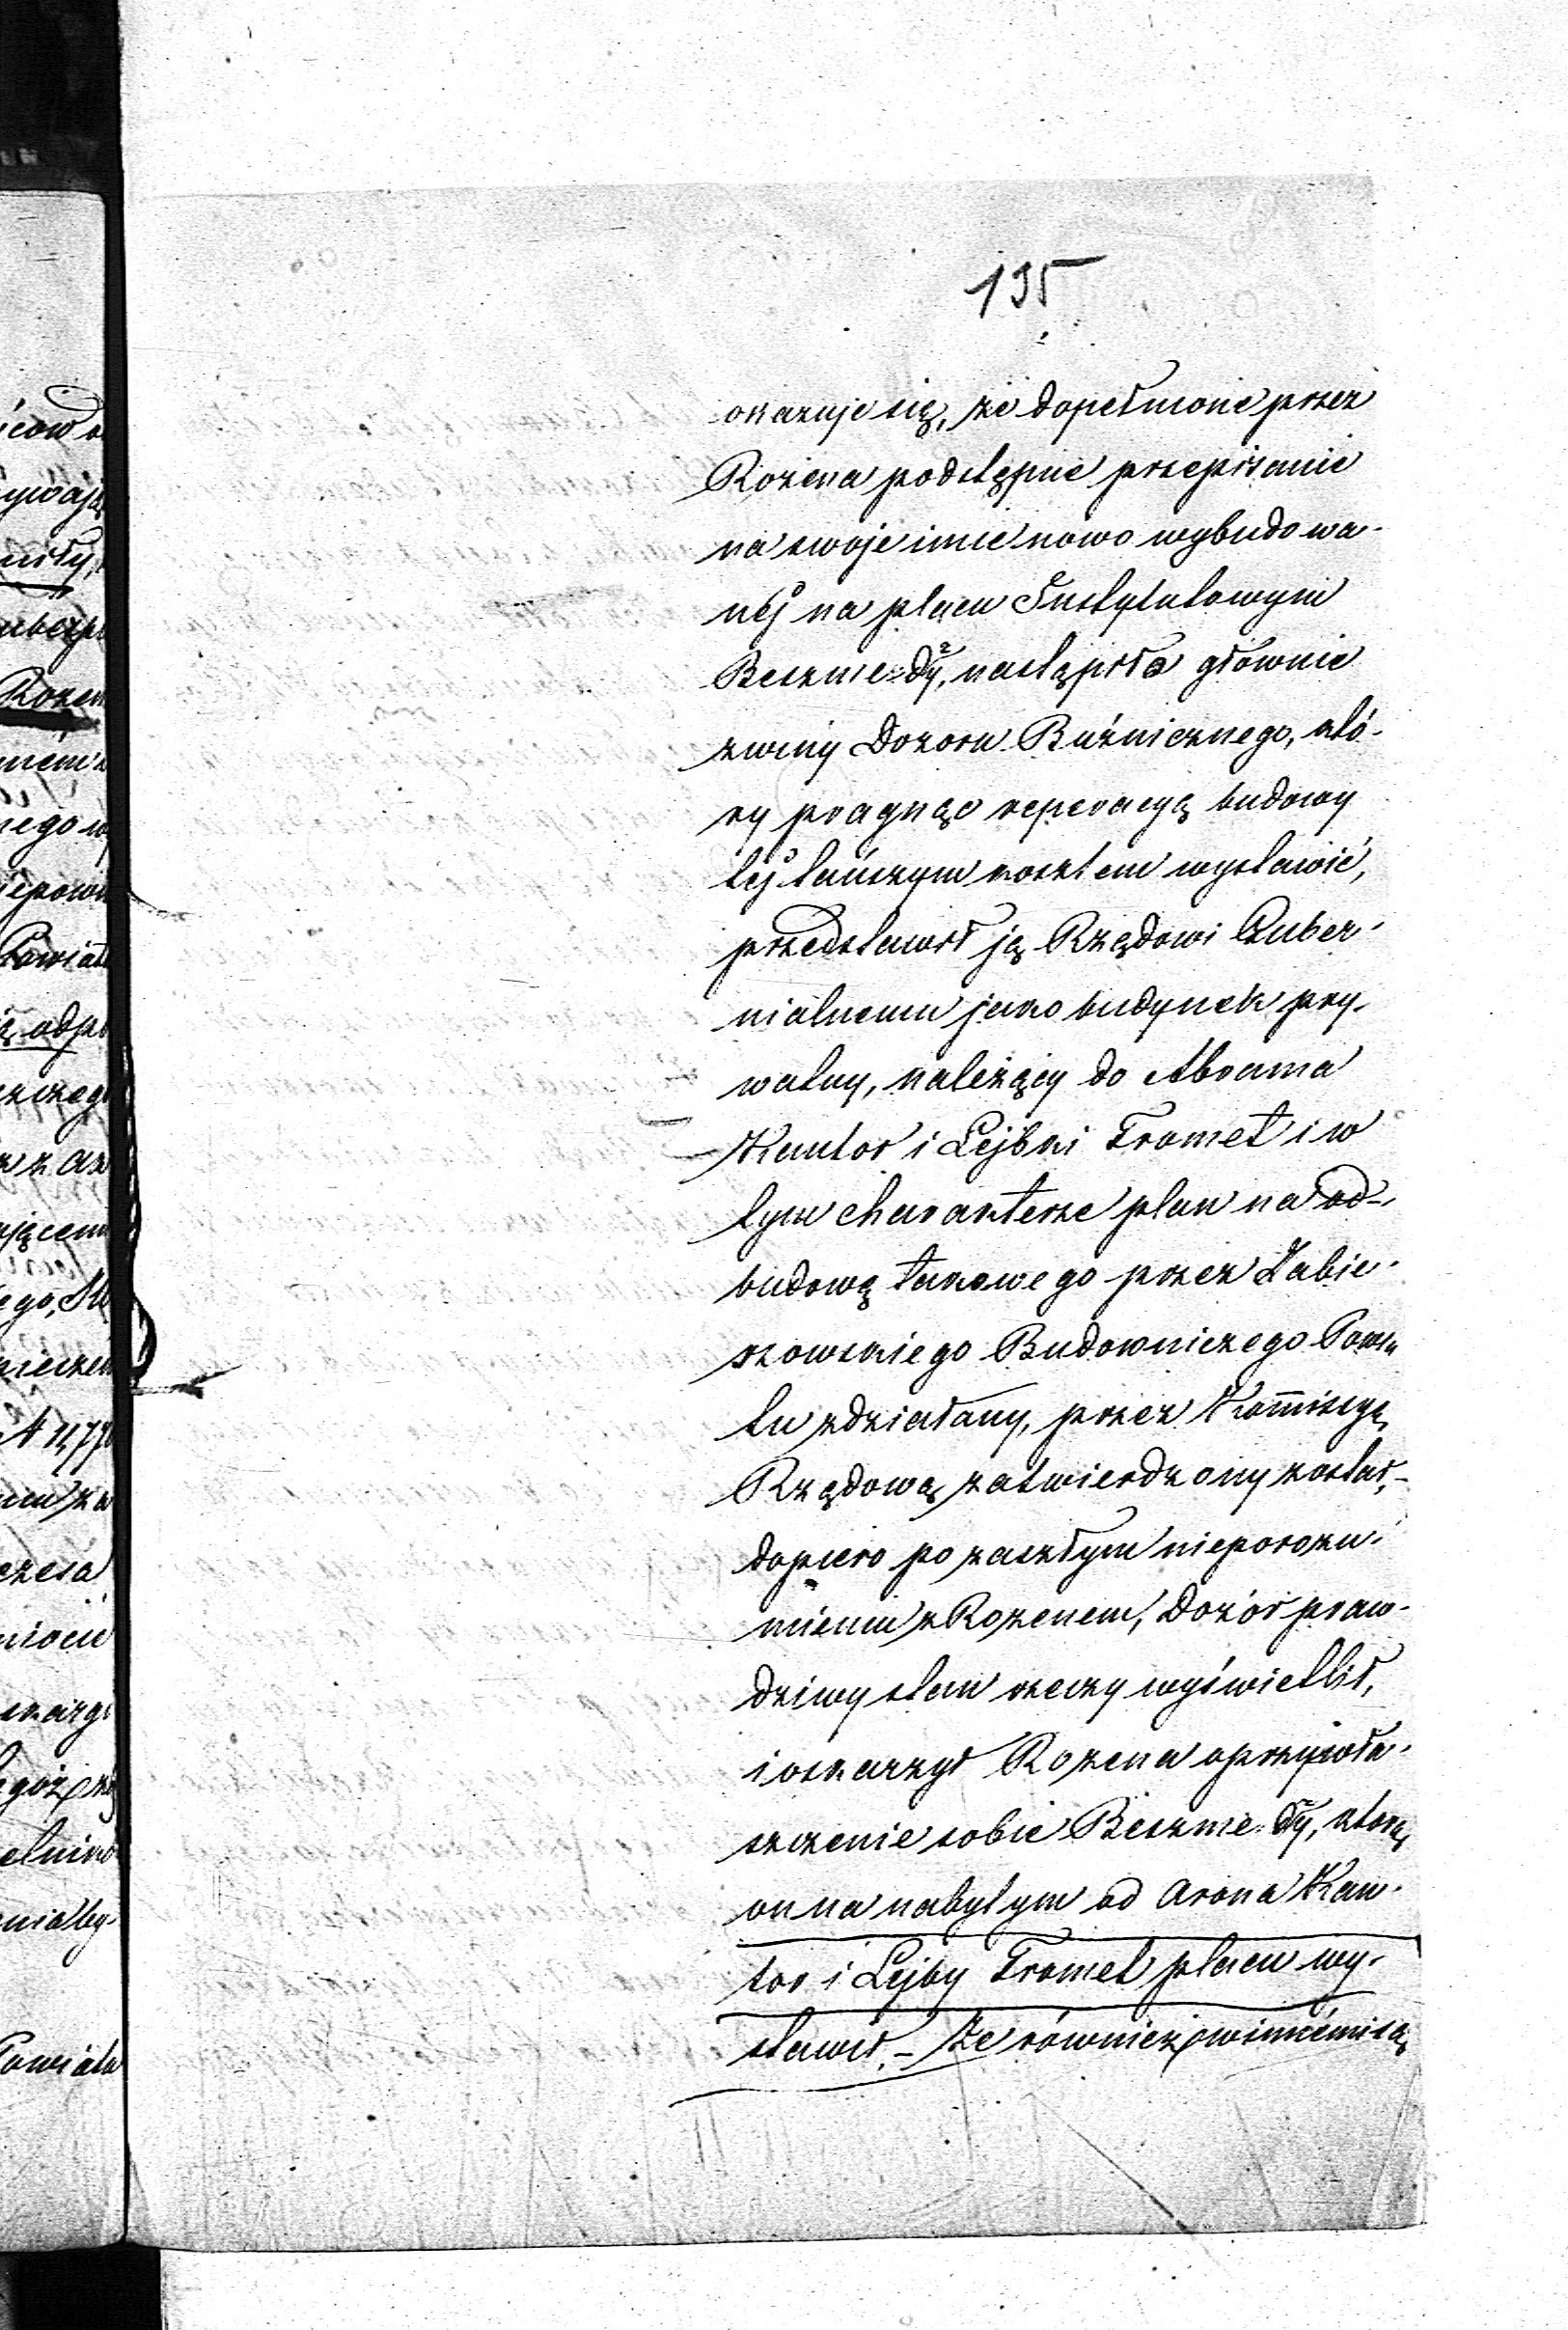 195
okazuje się, że dopełnione przez
Rozena podstępne przepisanie
na swoje imie nowo wybudowa-
nej na placu Instytutowym
Beszme-dy, nastąpiła głównie
z winy Dozoru Bużnicznego, któ-
ry pragnąc reperacyą budowy
tej tańszym kosztem wystawić,
przedstawił ją Rządowi Guber-
nialnemu jako budynek pry-
watny, należący do Abrama
Kantor i Lejbki Fromet i w
tym charakterze plan na od-
budowę takowego przez Zabie-
rzowskiego Budowniczego Powia
tu zdziałany, przez Kommissyą
Rządową zatwierdzony został,-
dopiero po zaszłym nieporozu-
mieniu z Rozenem, Dozór praw-
dziwy stan rzeczy wyświetlił,
i oskarzył Rozena o przywła-
szczenie sobie Beszme-dy, którą
on na nabytym od Arona Kan-
tor i Lejby Fromet placu wy-
stawił.- Że również powinnémi są